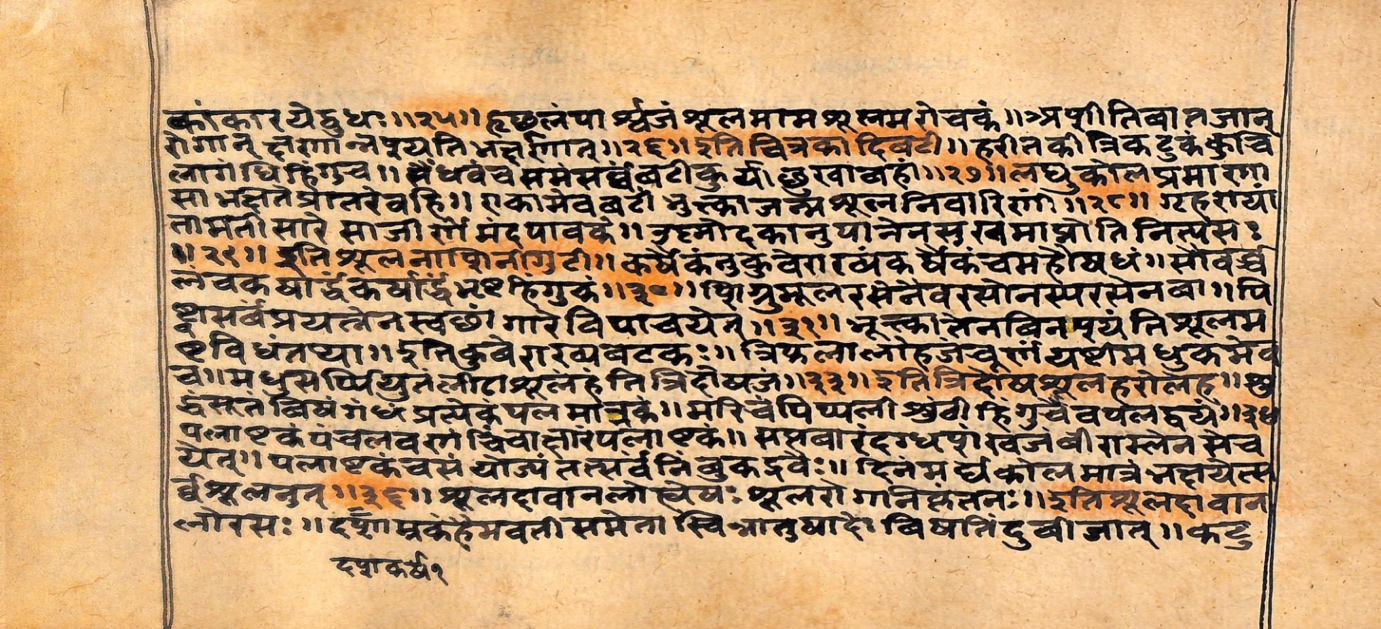 कांकारयेद्बुधः॥२५॥हृछूलंपार्श्वजंशूलमामशूलमरोचकं॥अशीतिवातजान्
रोगान् भक्षणात्॥२६॥इतिचित्रकादिवटी॥हरीतकीत्रिकटुकंकुचि
लागंधिहिंगुच॥सैंधवंचसमंसर्वंवटीकुर्यात्सुखावहां॥२७॥लघुकोलप्रमाणा
साभक्षितेप्रातरेवहि॥एकामेववटीभुक्ताजन्मशूलनिवारिणी॥२८॥ग्रहण्यां
तामतीसारेसाजीर्णेमंदपावके॥उष्णोदकानुपानेनसुखमाप्नोतिनित्यसः
॥२९॥इतिशूलनाशिनीगुटी॥कर्षैकंतुकुवेराख्यंकर्षैकंचमहौषधं॥सौवर्च्च
लंचकर्षार्द्धंकर्षार्द्धंभृष्टहिंगुकं॥३०॥शिग्रुमूलरसेनैवरसोनस्यरसेनवा॥पि
ष्ट्वासर्वंप्रयत्नेनस्वछांगारेविपाचयेत्॥३१॥भुक्तातेनविनश्यंतिशूलम
ष्टविधंतथा॥इतिकुवेराख्यवटकः॥त्रिफलालोहजंचूर्णंयष्टीमधुकमेव
च॥मधुसर्प्पिर्युतंलीढाशूलंहंतित्रिदोषजं॥३३॥इतित्रिदोषशूलहरोलेह॥शु
द्धंसूतंविषंगंधंप्रत्येकंपलमात्रकं॥मरिचंपिप्पलीशुंठीहिंगुचैवपलद्वयं॥३४
पलाष्टकंपंचलवणंचिंचाक्षारंपलाष्टकं॥सप्तवारंदग्धशंखंजंबीराम्लेनसेच
येत्॥पलाष्टकंचसंयोज्यंतत्सर्वंनिंबुकद्रवैः॥दिनंमर्द्यंकोलमात्रंभक्षयेत्स
र्व्वशूलनुत्॥३६॥शूलदावानलोह्येषःशूलरोगनिकृंतनः॥इतिशूलदावान
लोरसः॥ हैमवतीसमेता विषतिंदुबीजात्॥कटु